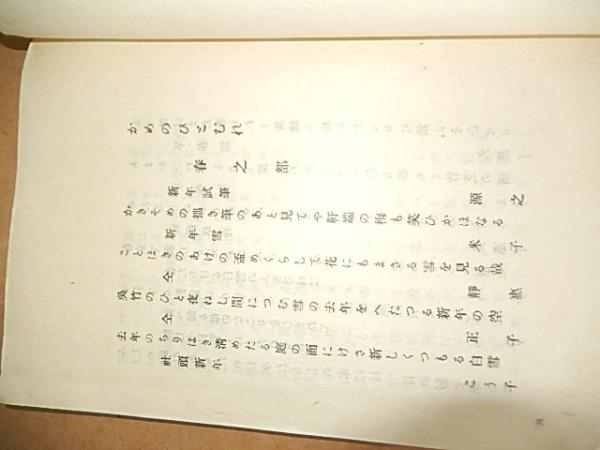 かめのひとむれ
春之部
新年試筆
源之
かきそめの拙き筆のあと見てや軒端の梅も笑ひかほなる
新年雪
米子
ことほきのあけの盃めくらして花にもまさる雪を見る哉
仝
靜
呉竹のひと夜ねし間につむ雪の去年をへたつる新年の空
仝
正子
去年のちりはき清めたる庭の面にけさ新しくつもる白雪
社頭新年
こう子